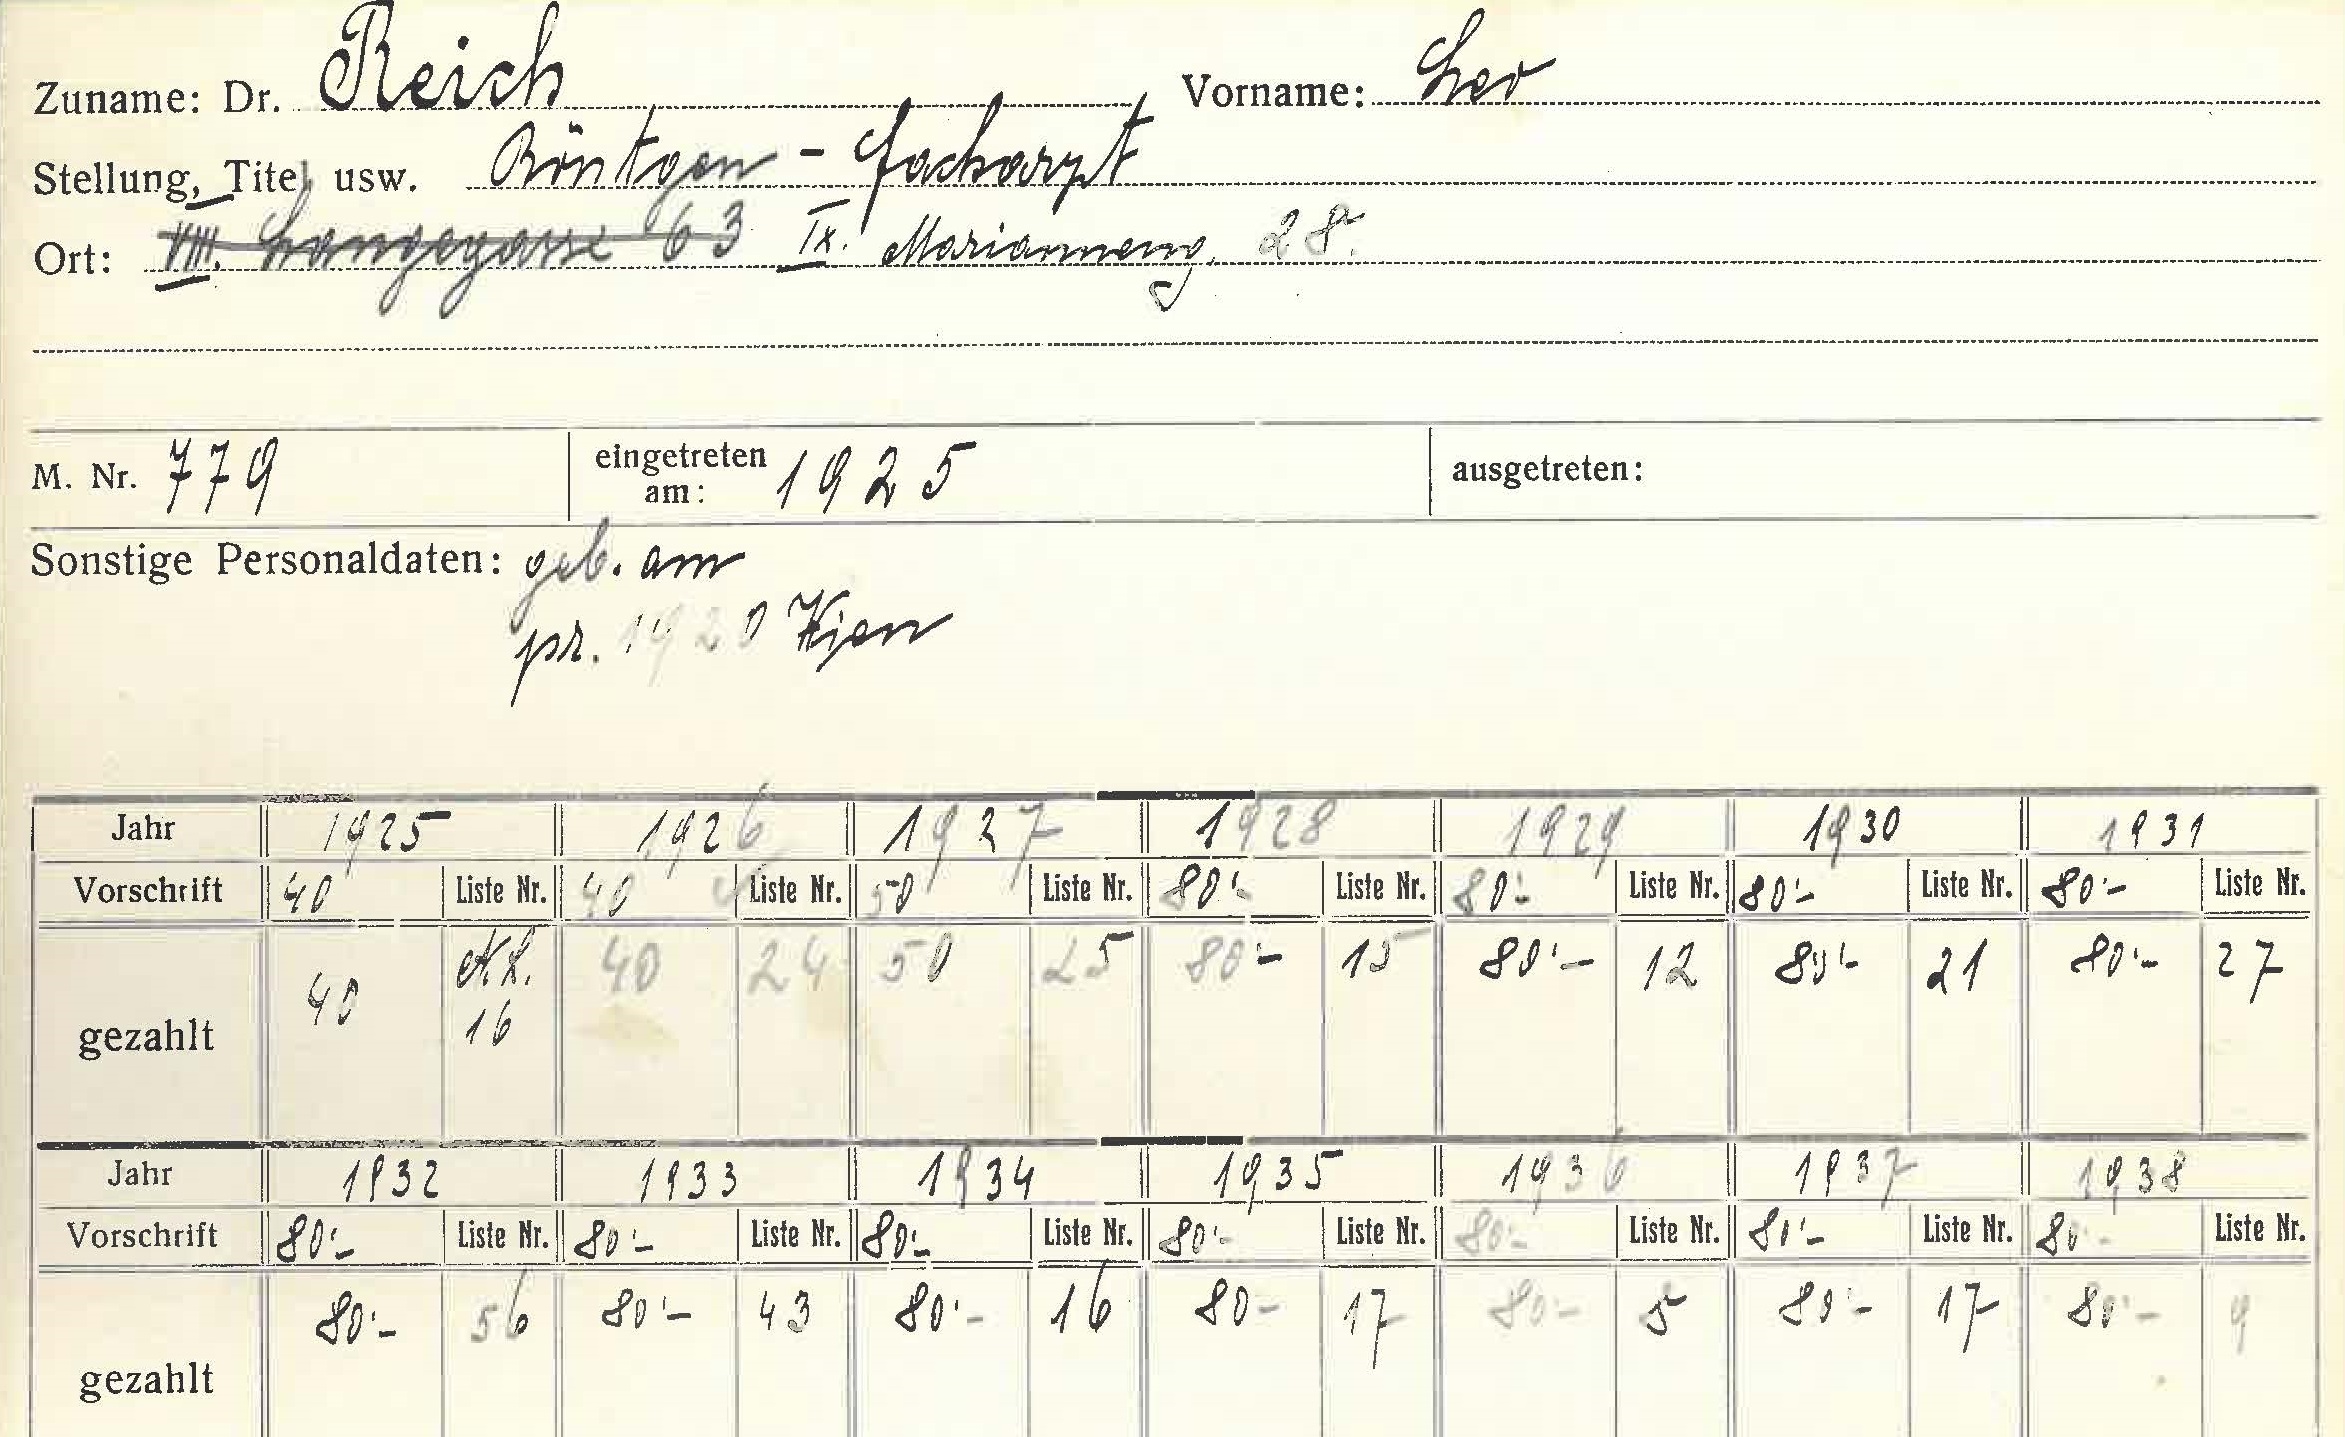 Zuname: Dr. Reich Vorname: Leo
Stellung, Titel usw. Röntgen - Facharzt
Ort: VIII. Langegasse 63 IX. Marianneng. 28.
M. Nr. 779 eingetreten am: 1925 ausgetreten:
Sonstige Personaldaten: geb. am
pr. 1920 Wien
Jahr 1925 1926 1927 1928 1929 1930 1931
Vorschrift 40 Liste Nr. 40 Liste Nr. 50 Liste Nr. 80'- Liste Nr. 80'- Liste Nr. 80'- Liste Nr. 80'- Liste Nr.
gezahlt 40 16 40 24 50 25 80'- 15 80'- 12 80'- 21 80'- 27
Jahr 1932 1933 1934 1935 1936 1937 1938
Vorschrift 80'- Liste Nr. 80'- Liste Nr. 80'- Liste Nr. 80'- Liste Nr. 80'- Liste Nr. 80'- Liste Nr. 80'- Liste Nr.
gezahlt 80'- 56 80'- 43 80'- 16 80- 17 80'- 5 80'- 17 80'- 9